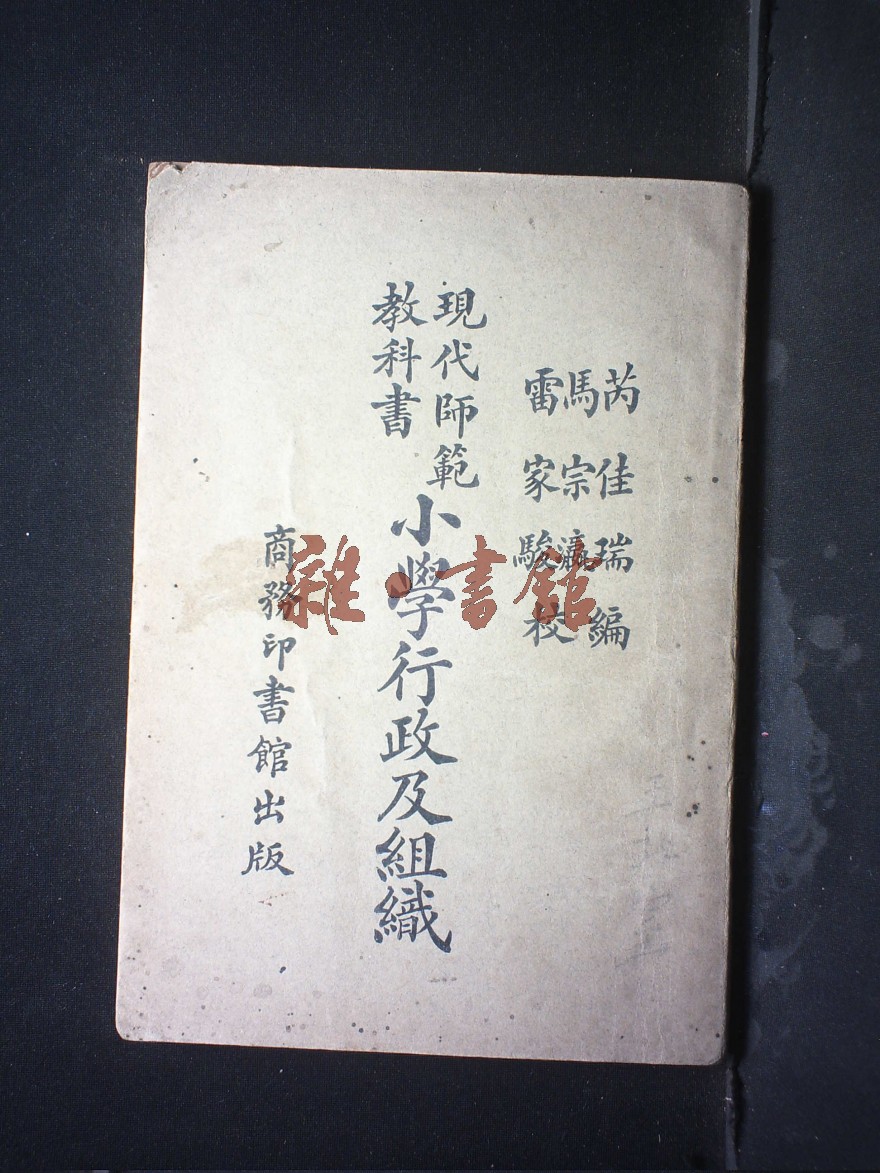 芮佳瑞編
馬宗瀛
雷家駿校
現代師範
教科書
小學行政及組織
商務印書館出版
雜·書館